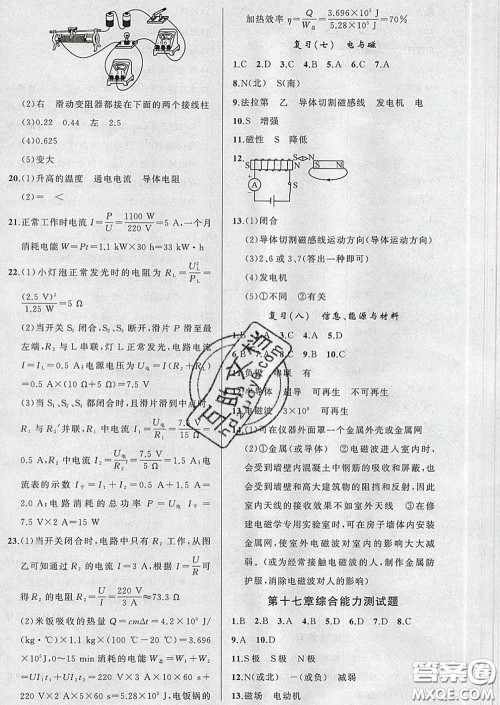 (2)右 滑动变阻器都接在下面的两个接线柱
(3)0.22 0.44 左 2.5
(4)0.625
(5)变大
20.(1)升高的温度 通电电流 导体电阻
(2)= <
21.正常工作时电流 I=P/U=1100 W/220 V=5 A,一个月
消耗电能 W=Pt=1.1 kW×30 h=33 kW·h
22.(1)小灯泡正常发光时的电阻为 R_L=U_L²/P_L=
(2.5 V)²/1.25 W=5 Ω
(2)当开关 S 闭合,S₁、S₂ 断开,滑片 P 滑至最
右端时,R₂ 与 L 串联,灯 L 正常发光,电路电流
I=I_L=0.5 A;电源电压为 U_电=I(R₂+R_L)
=0.5 A×(10 Ω+5 Ω)=7.5 V
(3)当开关 S、S₁、S₂ 都闭合,且滑片滑到中点时,
R₁ 与 R₂ 并联,R₂ 中电流 I₂=U_电/R₂=7.5 V/5 Ω=1.5
A,R₁ 中电流 I₁=U_电/R₁=7.5 V/15 Ω=0.5 A,电
流表的示数 I_干=I₁+I₂=0.5 A+1.5 A=
2.0 A;电路消耗的总功率 P=U_电 I_干=
7.5 V×2 A=15 W
23.(1)当开关闭合时,电路中只有 R₂ 工作,从图
乙可知通过它的电流 I=3 A,根据 I=U/R可得
R₂=U/I=220 V/3 A≈73.3 Ω
(2)米饭吸收的热量 Q=cmΔt=4.2×10³ J/
(kg·℃)×1.1 kg×(100℃-20℃)=3.696
×10⁵ J,0~15 min 消耗的电能 W=W₁+W₂=
UI₁t₁+UI₂t₂=220 V×3 A×10×60 s+220 V
×2 A×5×60 s=5.28×10⁵ J;电饭锅的
加热效率 η=Q/W_总=3.696×10⁵ J/5.28×10⁵ J=70%
复习(七) 电与磁
1.C 2.D 3.C 4.B 5.A 6.C 7.A
8.N(北) S(南)
9.法拉第 乙 导体切割磁感线 发电机 电
10.S 增强
11.磁性 S 降低
12.
13.(1)闭合
(2)导体切割磁感线运动方向(导体运动方向)
(3)2、6 或 3、7(答出一种即可)
(4)发电机
(5)①不同 ②有关
复习(八) 信息、能源与材料
13.电磁波 3×10⁸ 可再生
14.(1)可在仪器外面罩个金属壳或金属网
(2)①金属(或导体) ②电磁波进入室内时,
会受到墙壁内混凝土中钢筋的吸收和屏蔽,也
会受到墙壁和高大建筑物的阻挡和吸收,所以
室内天线的接收效果不如室外天线 ③在修
建电磁学专用实验室时,可在房子墙体内安装
金属网、室外电磁波对室内的影响大大减
弱。(或为经常接触电磁波的人,制作金属防
护服,消除电磁波对人的影响等)
第十七章综合能力测试题
1.B 2.D 3.A 4.A 5.C 6.D 7.C 8.C
9.A 10.D
11.S 极 S 极 N 极
12.N(或北) -(或负) 减弱
13.磁场 电动机
答案圈
MXQE.COM